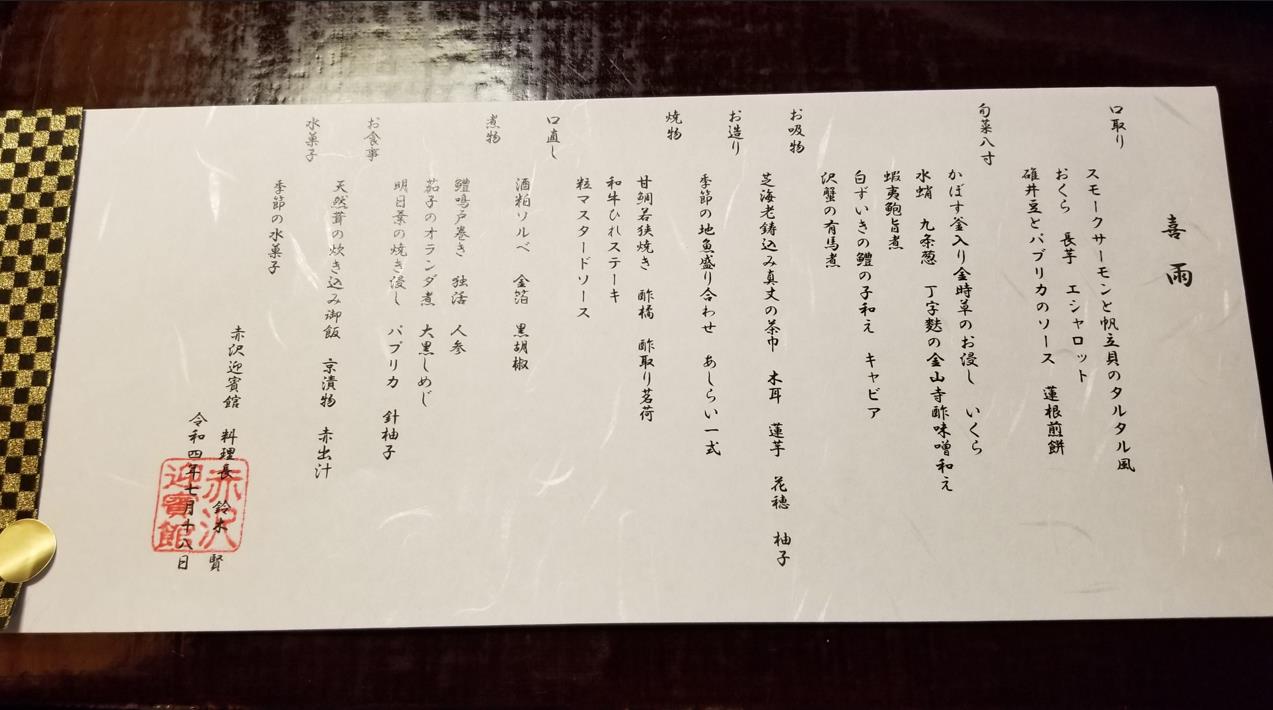 喜雨
口取り
スモークサーモンと帆立貝のタルタル風
おくら 長芋 エシャロット
碓井豆とパプリカのソース 蓮根煎餅
旬菜八寸
かぼす釜入り金時草のお浸し いくら
水蛸 九条葱 丁字麩の金山寺酢味噌和え
蝦夷鮑旨煮
白ずいきの鱧の子和え キャビア
沢蟹の有馬煮
お吸物
芝海老鋳込み真丈の茶巾 木耳 蓮芋 花穂 柚子
お造り
季節の地魚盛り合わせ あしらい一式
焼物
甘鯛若狭焼き 酢橘 酢取り茗荷
和牛ひれステーキ
粒マスタードソース
口直し
酒粕ソルベ 金箔 黒胡椒
煮物
鱧鳴戸巻き 独活 人参
茄子のオランダ煮 大黒しめじ
明日葉の焼き浸し パプリカ 針柚子
お食事
天然茸の炊き込み御飯 京漬物 赤出汁
水菓子
季節の水菓子
赤沢迎賓館 料理長 鈴木 賢
令和四年七月十八日
赤沢
迎賓館